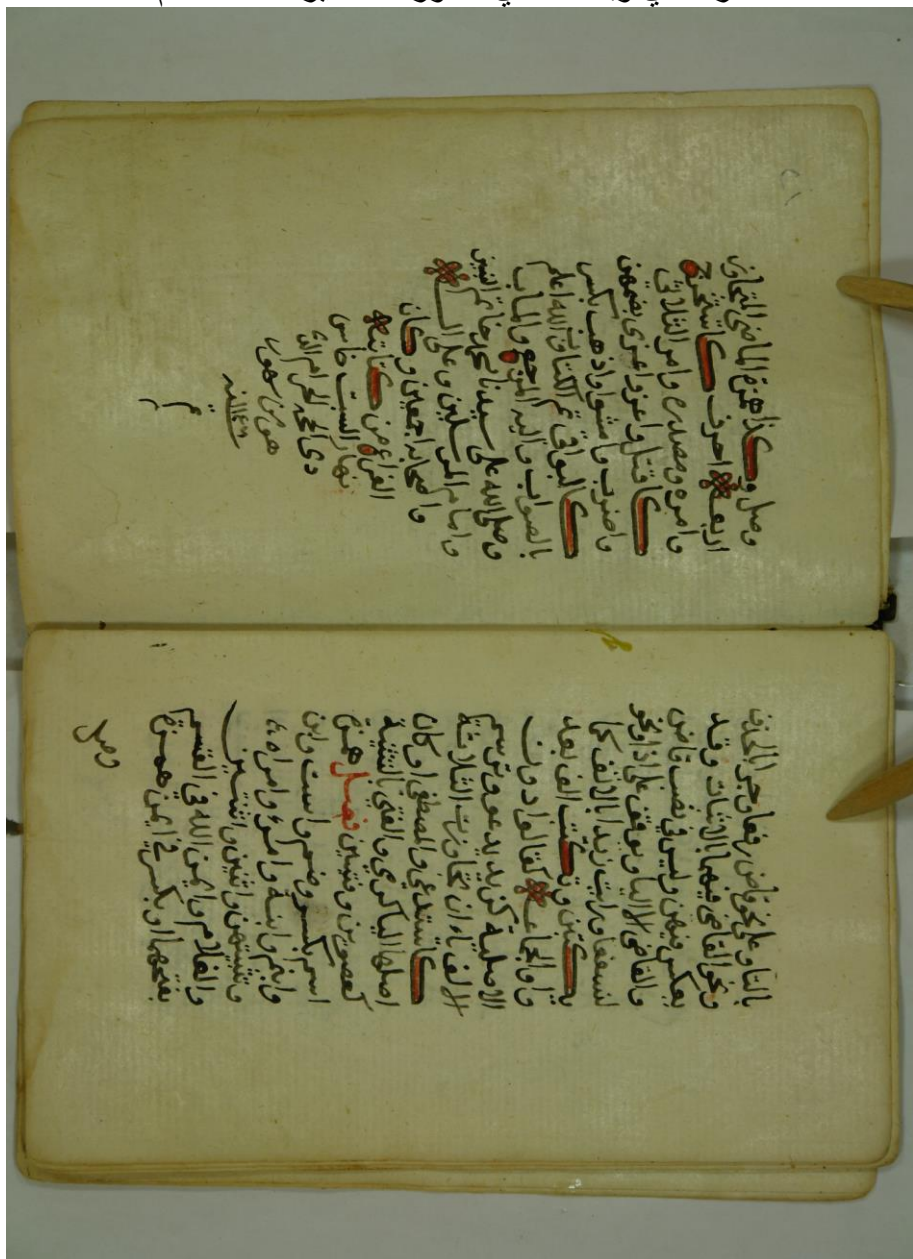 بالتا وعلى نحو قاض رفعا وجرا بالحذف
ونحو القاضي فيهما بالاثبات وقد
يعكس فيهن وليس في نصب قاض
والقاضي الا اليا ويوقف على اذا ونحو
لنسفعا ورايت زيدا بالالف كما
يكتبن وتكتب الف بعد
واو الجماعة كقالوا دون
الاصلية كزيد يدعو وترسم
الالف ياء ان تجاوزت الثلاثة
كاستدعي والمصطفى او كان
اصلها اليا كرمي والفتى بالتثنية
كعصوين وفتيين فصل همزة
اسم بكسر وضم واست وابن
وابنم وابنة وامرؤ وامراه
وتثنيتهن واثنين واثنتين
والغلام وايمن الله في القسم
بفتحهما او بكسر في ايمن همزة
وصل
وصل وكذا همزة الماضي المتجاوز
اربعة احرف كاستخرج
وامره ومصدره وامر الثلاثي
كاقتل واغز واغزى بضمهن
واضرب وامشوا واذهب بكسر
كالبواقي تم الكتاب والله اعلم
بالصواب واليه المرجع والماب
وصلى الله على سيدنا محمد خاتم النبيين
وامام المرسلين وعلى اله
واصحابه اجمعين وكان
الفراغ من كتابته
نهار السبت خامس
ذي الحجه الحرام الذي
هو من شهور